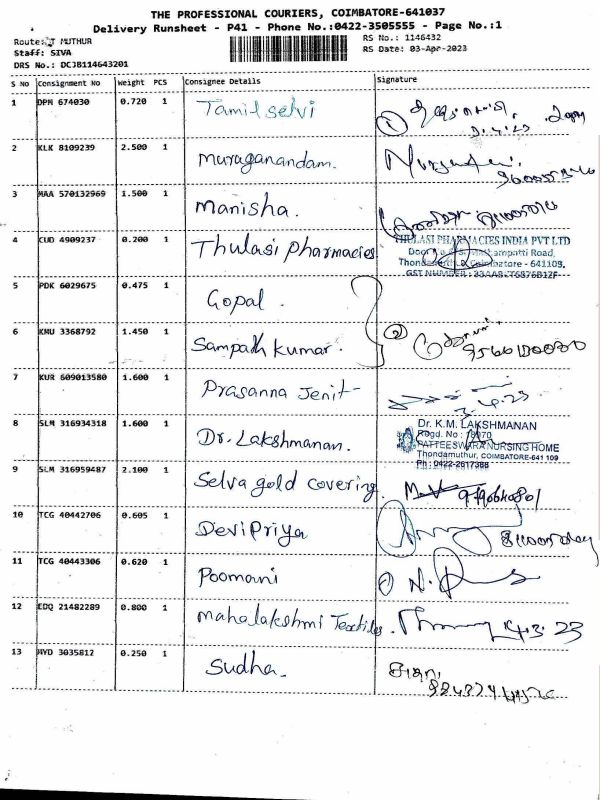 THE PROFESSIONAL COURIERS, COIMBATORE-641037
Delivery Runsheet - P41 - Phone No.:0422-3505555 - Page No.:1
Route: T MUTHUR
Staff: SIVA
DRS No.: DCJB114643201
RS No.: 1146432
RS Date: 03-Apr-2023
S No Consignment No Weight PCS Consignee Details Signature
1 DPM 674030 0.720 1 Tamilselvi
2 KLK 8109239 2.500 1 Muruganandam.
3 MAA 570132969 1.500 1 Manisha.
4 CUD 4909237 0.200 1 Thulasi Pharmacies
THULASI PHARMACIES INDIA PVT LTD
Road,
Coimbatore - 641109,
GST NUMBER :
5 PDK 6029675 0.475 1 Gopal.
6 KMU 3368792 1.450 1 Sampath kumar. 2
7 KUR 609013580 1.600 1 Prasanna Jenit
3.4.23
8 SLM 316934318 1.600 1 Dr. Lakshmanan.
Dr. K.M. LAKSHMANAN
Regd. No :
PATTEESWARA NURSING HOME
Thondamuthur, COIMBATORE-641 109
Ph : 0422-2617388
9 SLM 316959487 2.100 1 Selva gold covering
10 TCG 40442706 0.605 1 Devipriya
11 TCG 40443306 0.620 1 Poomani
12 EDQ 21482289 0.800 1 Mahalakshmi Textiles.
13 MYD 3035812 0.250 1 Sudha. சுதா